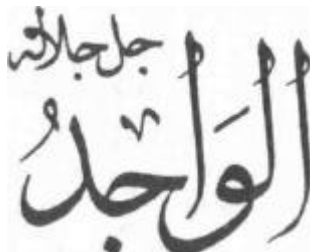 جل جلاله
الواجدُ